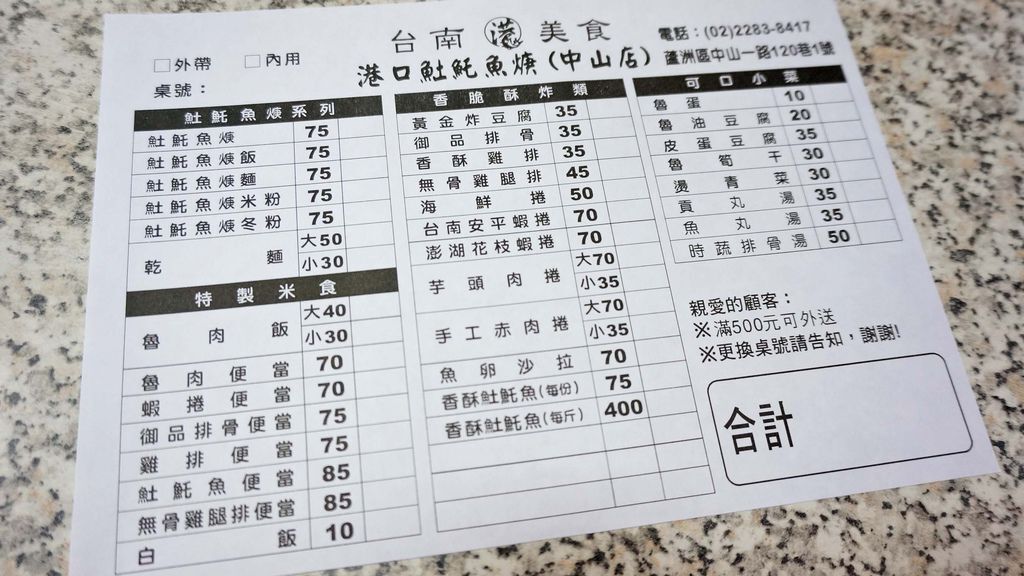 台南 港 美食
電話：(02)2283-8417
□外帶 □內用
港口魠魠魚焿(中山店) 蘆洲區中山一路120巷1號
桌號：
魠魠魚焿系列
魠魠魚焿 75
魠魠魚焿飯 75
魠魠魚焿麵 75
魠魠魚焿米粉 75
魠魠魚焿冬粉 75
乾麵 大50
小30
特製米食
魯肉飯 大40
小30
魯肉便當 70
蝦捲便當 70
御品排骨便當 75
雞排便當 75
魠魠魚便當 85
無骨雞腿排便當 85
白飯 10
香脆酥炸類
黃金炸豆腐 35
御品排骨 35
香酥雞排 35
無骨雞腿排 45
海鮮捲 50
台南安平蝦捲 70
澎湖花枝蝦捲 70
芋頭肉捲 大70
小35
手工赤肉捲 大70
小35
魚卵沙拉 70
香酥魠魠魚(每份) 75
香酥魠魠魚(每斤) 400
可口小菜
魯蛋 10
魯油豆腐 20
皮蛋豆腐 35
魯筍干 30
燙青菜 30
貢丸湯 35
魚丸湯 35
時蔬排骨湯 50
親愛的顧客：
※滿500元可外送
※更換桌號請告知，謝謝!
合計